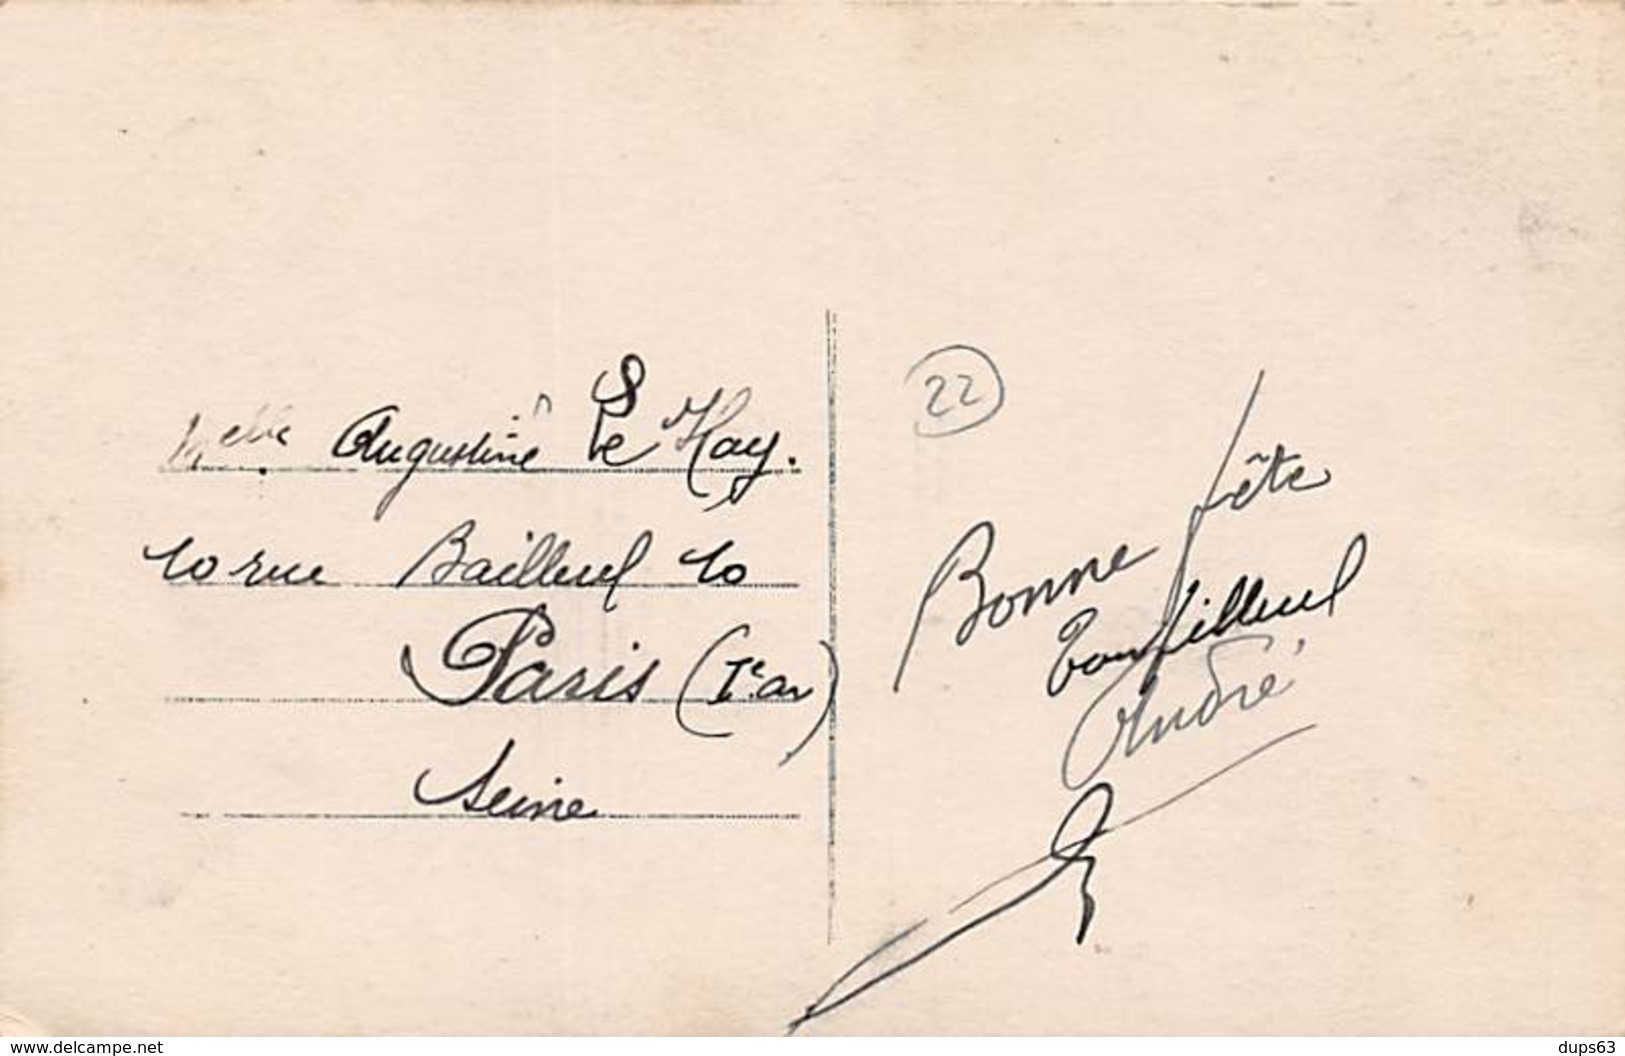 Melle Augustine Le Hay.
10 rue Bailleul 10
Paris (Ier ar)
Seine
22
Bonne fête
Ton filleul
André
www.delcampe.net
dups63